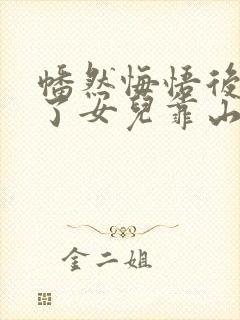 幡然悔悟後
了女兒靠山
金二姐